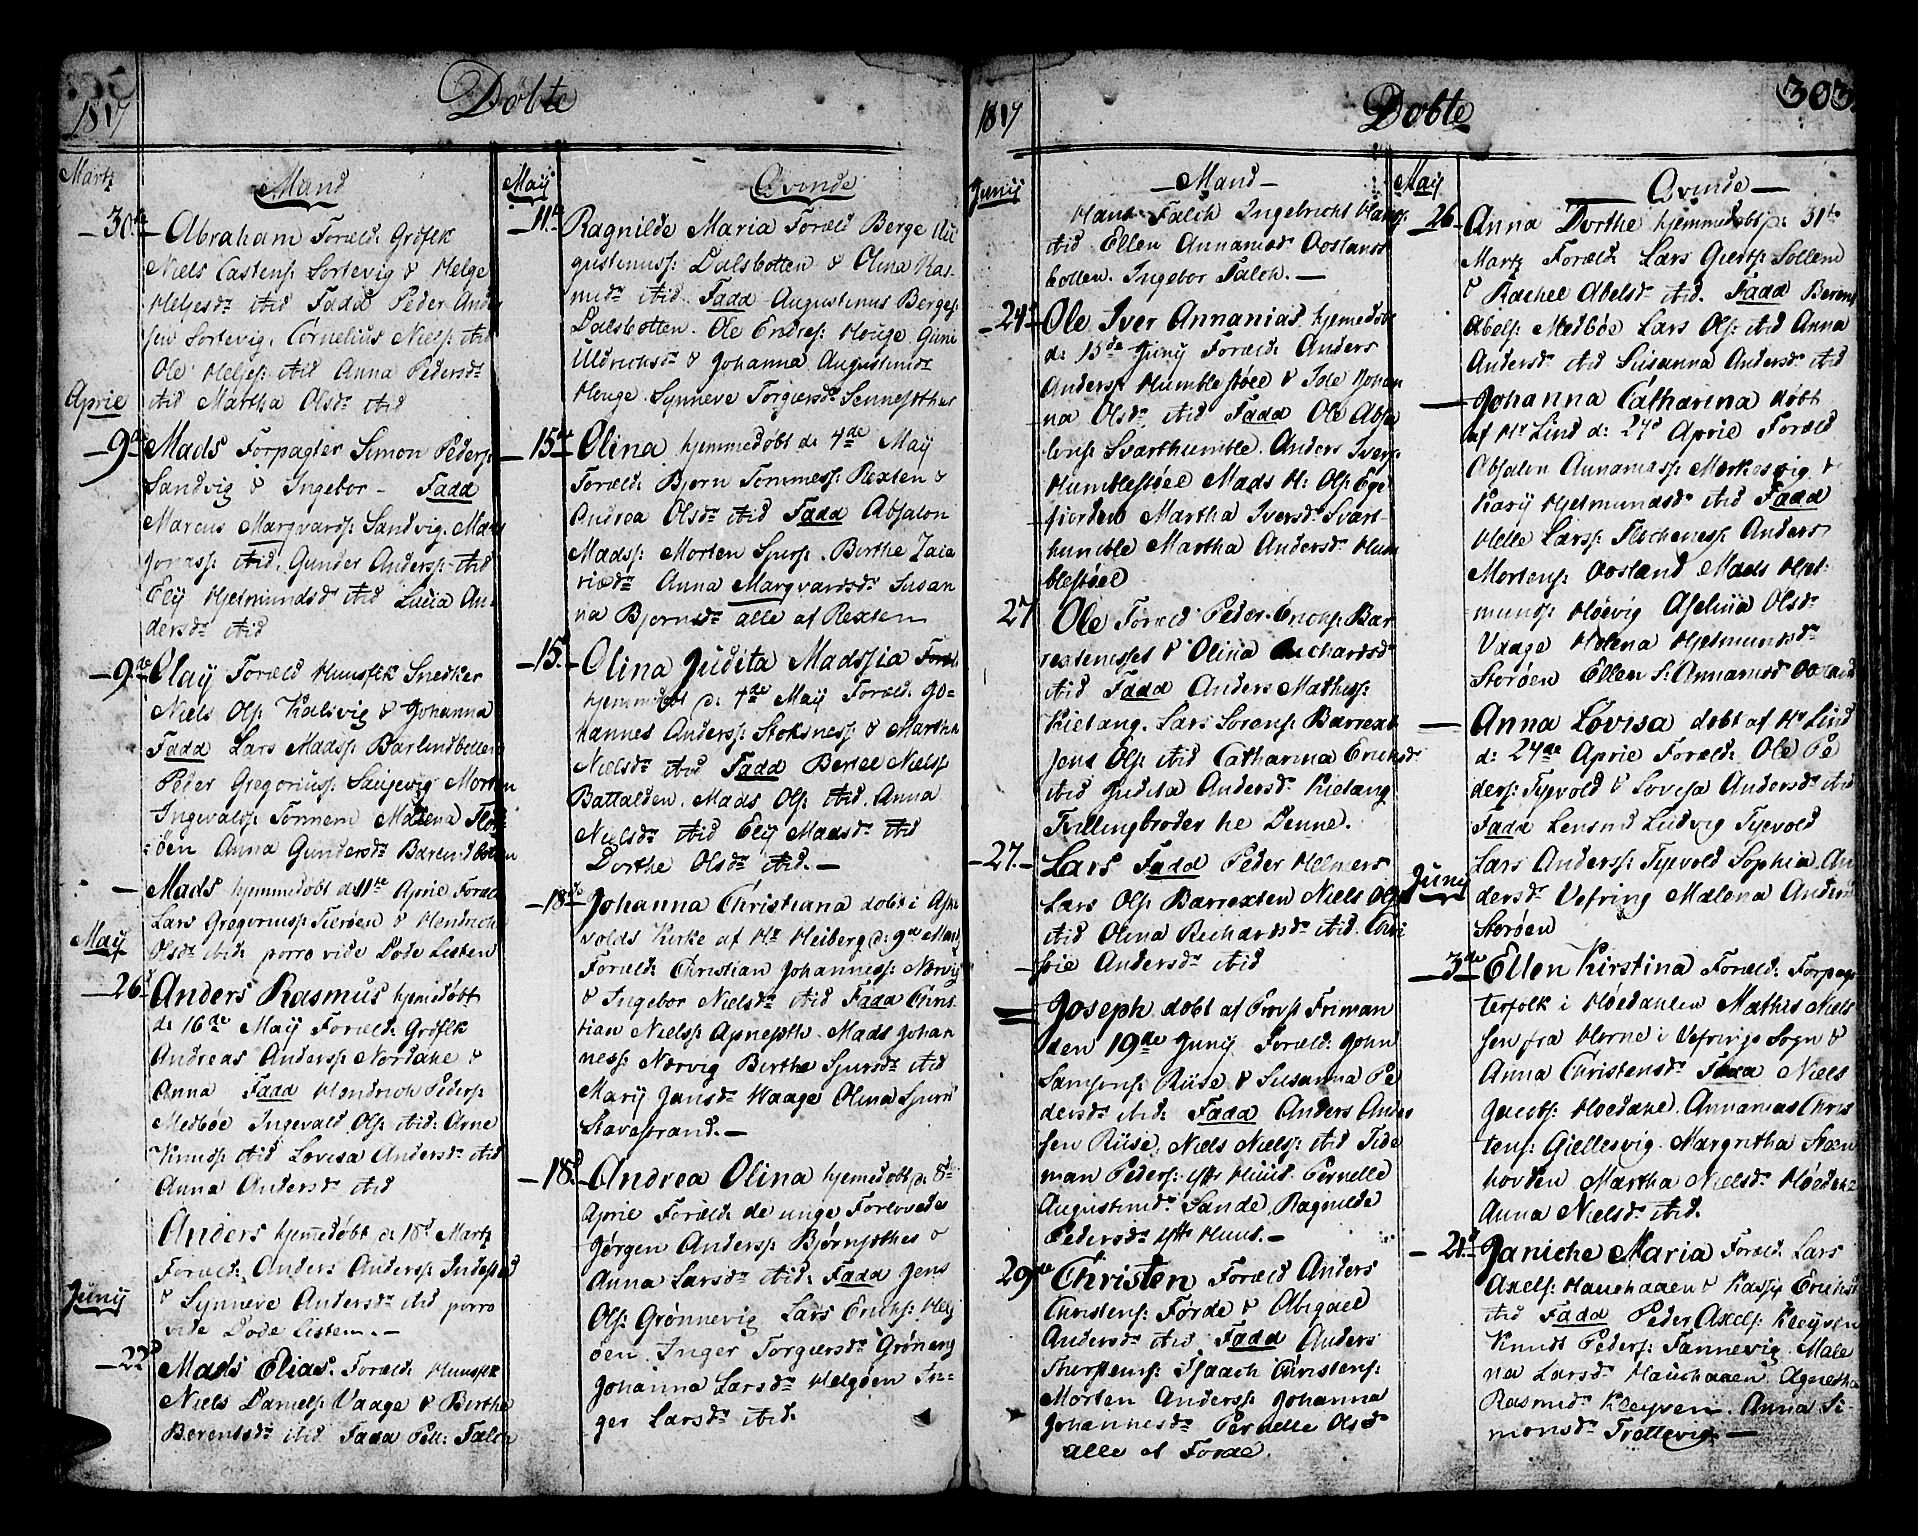 1817
Døbte
Martz
Mand
30te Abraham Foræld: Grdflk
Niels Castens: Sortevig & Helge
Heljesdr itid Fadd Peder Anders
sen Sortevig, Cornelius Niels: itid
Ole Heljes: itid Anna Pedersdr
itid Martha Olsdr itid
Aprie
9de Mads Forpagter Simon Peders:
Sandvig & Ingebor - Fadd
Marcus Margvards: Sandvig. Mads
Jonass: itid. Gunder Anders: itid
Elij Hjelmundsdr itid Lucia An-
dersdr itid
9de Olaij Foræld Huusflk Snedker
Niels Ols: Kalsvig & Johanna
Fadd Lars Madss: Barlindbotten
Peder Gregoriuss: Saujevig Morten
Ingvalds: Tonnem Malena Flor-
øen Anna Gundersdr Barlindbotten
Mads hjemmedøbt d: 11te Aprie Foræld
Lars Gregoriuss: Tierøen & Hendrich
Olsdr itid porro vide Døde Listen
May
26d Anders Rasmus hjemedøbt
d: 16de May Foræld: Grdflk
Andreas Anderss: Nordahe &
Anna Fadd Hendrich Peders:
Medbøe Ingevald Ols: itid: Arne
Knuds: itid Lovisa Andersdr itid
Anna Andersdr itid
Anders hjemedøbt d: 18d Martz
Foræld: Anders Anderss: Indested
& Synneve Andersdr itid porro
vide Døde Listen. -
Junij
22d Mads Elias. Foræld: Huusflk
Niels Daniels: Vaage & Birthe
Berentsdr itid Fadd Pett: Falch
May
Qvinde
11te Ragnilde Maria Foræld Berge Au
gustinuss: Dalsbotten & Olina Ras-
musdr itid. Fadd Augustinus Berges:
Dalsbotten. Ole Endres: Houge Guni
Uldrichsdr & Johanna Augustinusdr
Houge. Synneve Torgiersdr Sennesether
15de Olina hjemmedøbt d: 4de May
Foræld: Bjørn Tommess: Rexten &
Andrea Olsdr itid Fadd Absalon
Madss: Morten Spurs: Birthe Zaca
riædr Anna Margvardsdr Susan
na Bjørnsdr alle af Rexten
15. Olina Judita Madssia Foræld
hjemmedøbt d: 4de May Foræld: Jo-
hannes Anderss: Stoksness: & Martha
Nielsdr itid Fadd Bertel Niels:
Battalden. Mads Ols: itid. Anna
Nielsdr itid Elij Madsdr itid
Dorthe Olsdr itid. -
18de Johanna Christiana døbt i Aske
volds Kirke af Hr Heiberg d: 9de Mandz
Foræld: Christian Johanness: Nærvig
& Ingebor Nielsdr itid Fadd Chris-
tian Nielss: Apneseth. Mads Johan
ness: Nærvig Birthe Sjursdr itid
Marij Jensdr Waage Olina Sjursdr
Stavestrand. -
18d. Andrea Olina hjemedøbt d: 8de
Aprie Foræld: de unge Forlovede
Jørgen Anderss: Bjørnsethes &
Anna Larsdr itid: Fadd Jens
Ols: Grønnevig Lars Ericks: Helg
øen. Inger Torgiersdr Grøneng
Johanna Larsdr Helgøen In-
ger Larsdr itid.
1817
Døbte
303.
Junij
Mand
Hans Falch Ingebricht Hans:
itid Ellen Annaniasdr Ooslands
botten. Ingebor Falch. -
24d Ole Iver Annanias. hjemedøbt
d: 15de Junij Foræld: Anders
Anderss: Humblestøel & Jole Johan
na Olsdr itid Fadd Ole Absa
lons: Svarthumble. Anders Ivers:
Humblestøel Mads H: Ols: Ege
fjorden Martha Iversdr Svart
humble Martha Andersdr Hum
blestøel
27 Ole Foræld Peder Ericks: Bar
rextenisset & Olina Richardsdr
itid Fadd Anders Mathiss:
Kielang. Lars Sorens: Barrext
Jens Ols: itid Catharina Ericksdr
itid Judita Andersdr Kielang
Tvillingbroder he Denne.
27. Lars Fadd Peder Helmers
Lars Ols: Barrexten Niels Ols:
itid Olina Rechardsdr itid. Chri
stie Andersdr itid
Joseph døbt af Provst Friman
den 19de Junij Foræld: John
Samsons: Riise & Susanna Pe
dersdr itid: Fadd Anders Ander
sen Riise, Niels Niels: itid Tide
man Peders: ytre Huus. Pernelle
Augustinusdr Sande, Ragnilde
Pedersdr ytre Huus. -
29de Christen Foræld Anders
Christens: Førde & Abigael
Andersdr itid Fadd Anders
Thorstens: Isaach Christens:
Morten Anderss: Johanna
Johannesdr Pernelle Olsdr
alle af Førde.
May
Qvinde
26. Anna Dorthe hjemmedøbt d: 31te
Martz Foræld: Lars Gierts: Sollem
& Rachel Abelsdr itid. Fadd Berent
Abels: Medbøe Lars Ols: itid Anna
Andersdr itid Susanna Andersdr itid
Johanna Catharina døbt
af Hr Lind d: 24d Aprie Foræld
Absalon Annaniass: Morkesvig &
Karij Hjelmundsdr itid Fadd
Helle Larss: Flochenes: Anders
Mortens: Oosland Mads Hjel-
munds: Høevig Aseliia Olsdr
Vaage Helena Hjelmundsdr
Storøen Ellen S: Annaniasdr Oosland
Anna Lovisa døbt af Hr Lind
d: 24de Aprie Foræld: Ole Pe
ders: Tyevold & Lovisa Andersdr itid
Fadd Lensmd Ludvig Tyevold
Lars Anderss: Tyevold Sophia An
dersdr Vefring Malena Andersdr
Storøen
Junij
3de Ellen Kirstina Foræld: Forpag
terfolk i Høedahlen Mathis Niels
sen fra Horne i Vefrings Sogn &
Anna Christensdr Fadd Niels
Jacobs: Høedahl. Annanias Chris
tens: Gjellesvig. Margretha Steen
hovden Martha Nielsdr Høedahl
Anna Nielsdr itid.
21d Janiche Maria Foræld: Lars
Axels: Hauchaaen & Kassij Erichsdr
itid Fadd Peder Axels: Kleyven
Knudt Peders: Fannevig. Male
na Larsdr Hauchaaen. Agnetha
Rasmusdr Kleyven. Anna Si-
monsdr Trettevig. -